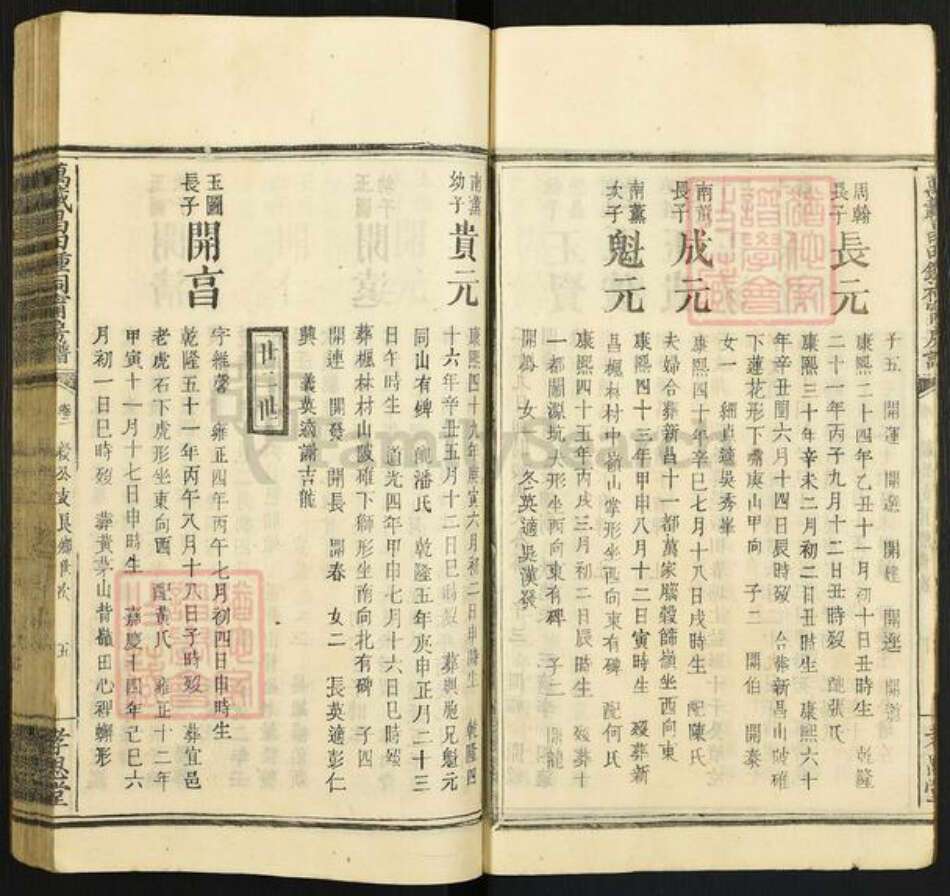 子五　開運　開選　開　開　開
周翰長子
長元
康熙二十四年乙丑十一月初十日丑時生　乾隆
二十一年丙子九月十二日丑時歿　配張氏
康熙三十年辛未二月初二日丑時生　康熙六十
年辛丑閏六月十四日辰時歿　合葬新昌山陂碓
下蓮花形下嘴庚山甲向　子二　開伯　開泰
女一　細貞適吳秀峯
南薰長子
成元
康熙四十年辛巳七月十八日戌時生　配陳氏
夫婦合葬新昌十一都萬家嶺坐西向東
南薰次子
魁元
康熙四十三年甲申八月十二日寅時生　歿葬新
昌楓林村中嶺山掌形坐西向東有碑　配何氏
康熙四十五年丙戌三月初二日辰時生　歿葬十
一都源坑犬形坐西向東有碑　子二　開龍
開　女一　冬英適吳漢發
南薰幼子
貴元
康熙四十九年庚寅六月初二日申時生　乾隆四
十六年辛丑五月十二日巳時歿　葬與胞兄魁元
同山有碑　配潘氏　乾隆五年庚申正月二十三
日午時生　道光四年甲申七月十六日巳時歿
葬楓林村山陂碓下獅形坐南向北有碑　子四
開連　開發　開長　開春　女二　長英適彭仁
興　義英適謝吉能
廿二世
玉圖長子
開亯
字雒馨　雍正四年丙午七月初四日申時生
乾隆五十一年丙午八月十八日子時歿　葬宜邑
老虎石下虎形坐東向酉　配黃氏　雍正十二年
甲寅十一月十七日申時生　嘉慶十四年己巳六
月初一日巳時歿　葬黃茅山背嶺田心螃蠏形
卷二
五
孝思堂
FamilySearch